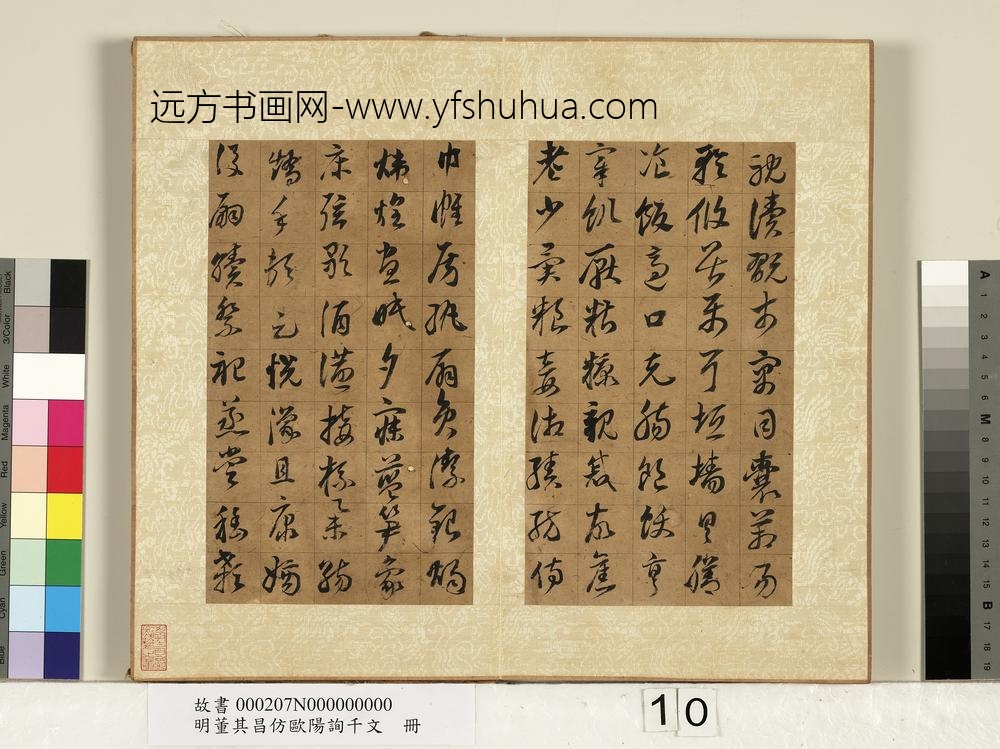 远方书画网-www.yfshuhua.com
耽讀翫市寓目囊箱易
輶攸畏屬耳垣墻具膳
飡飯適口充腸飽飫烹
宰飢厭糟糠親戚故舊
老少異糧妾御績紡侍
巾帷房紈扇員潔銀燭
煒煌晝眠夕寐藍笋象
床弦歌酒讌接杯舉觴
矯手頓足悅豫且康嫡
後嗣續祭祀蒸嘗稽顙
故書 000207N000000000
明董其昌仿歐陽詢千文 冊
10
Black
3/Color
White
Magenta
Red
Yellow
Green
Cyan
Blue
A 1 2 3 4 5 6 M 8 9 10 11 12 13 14 15 B 17 18 19